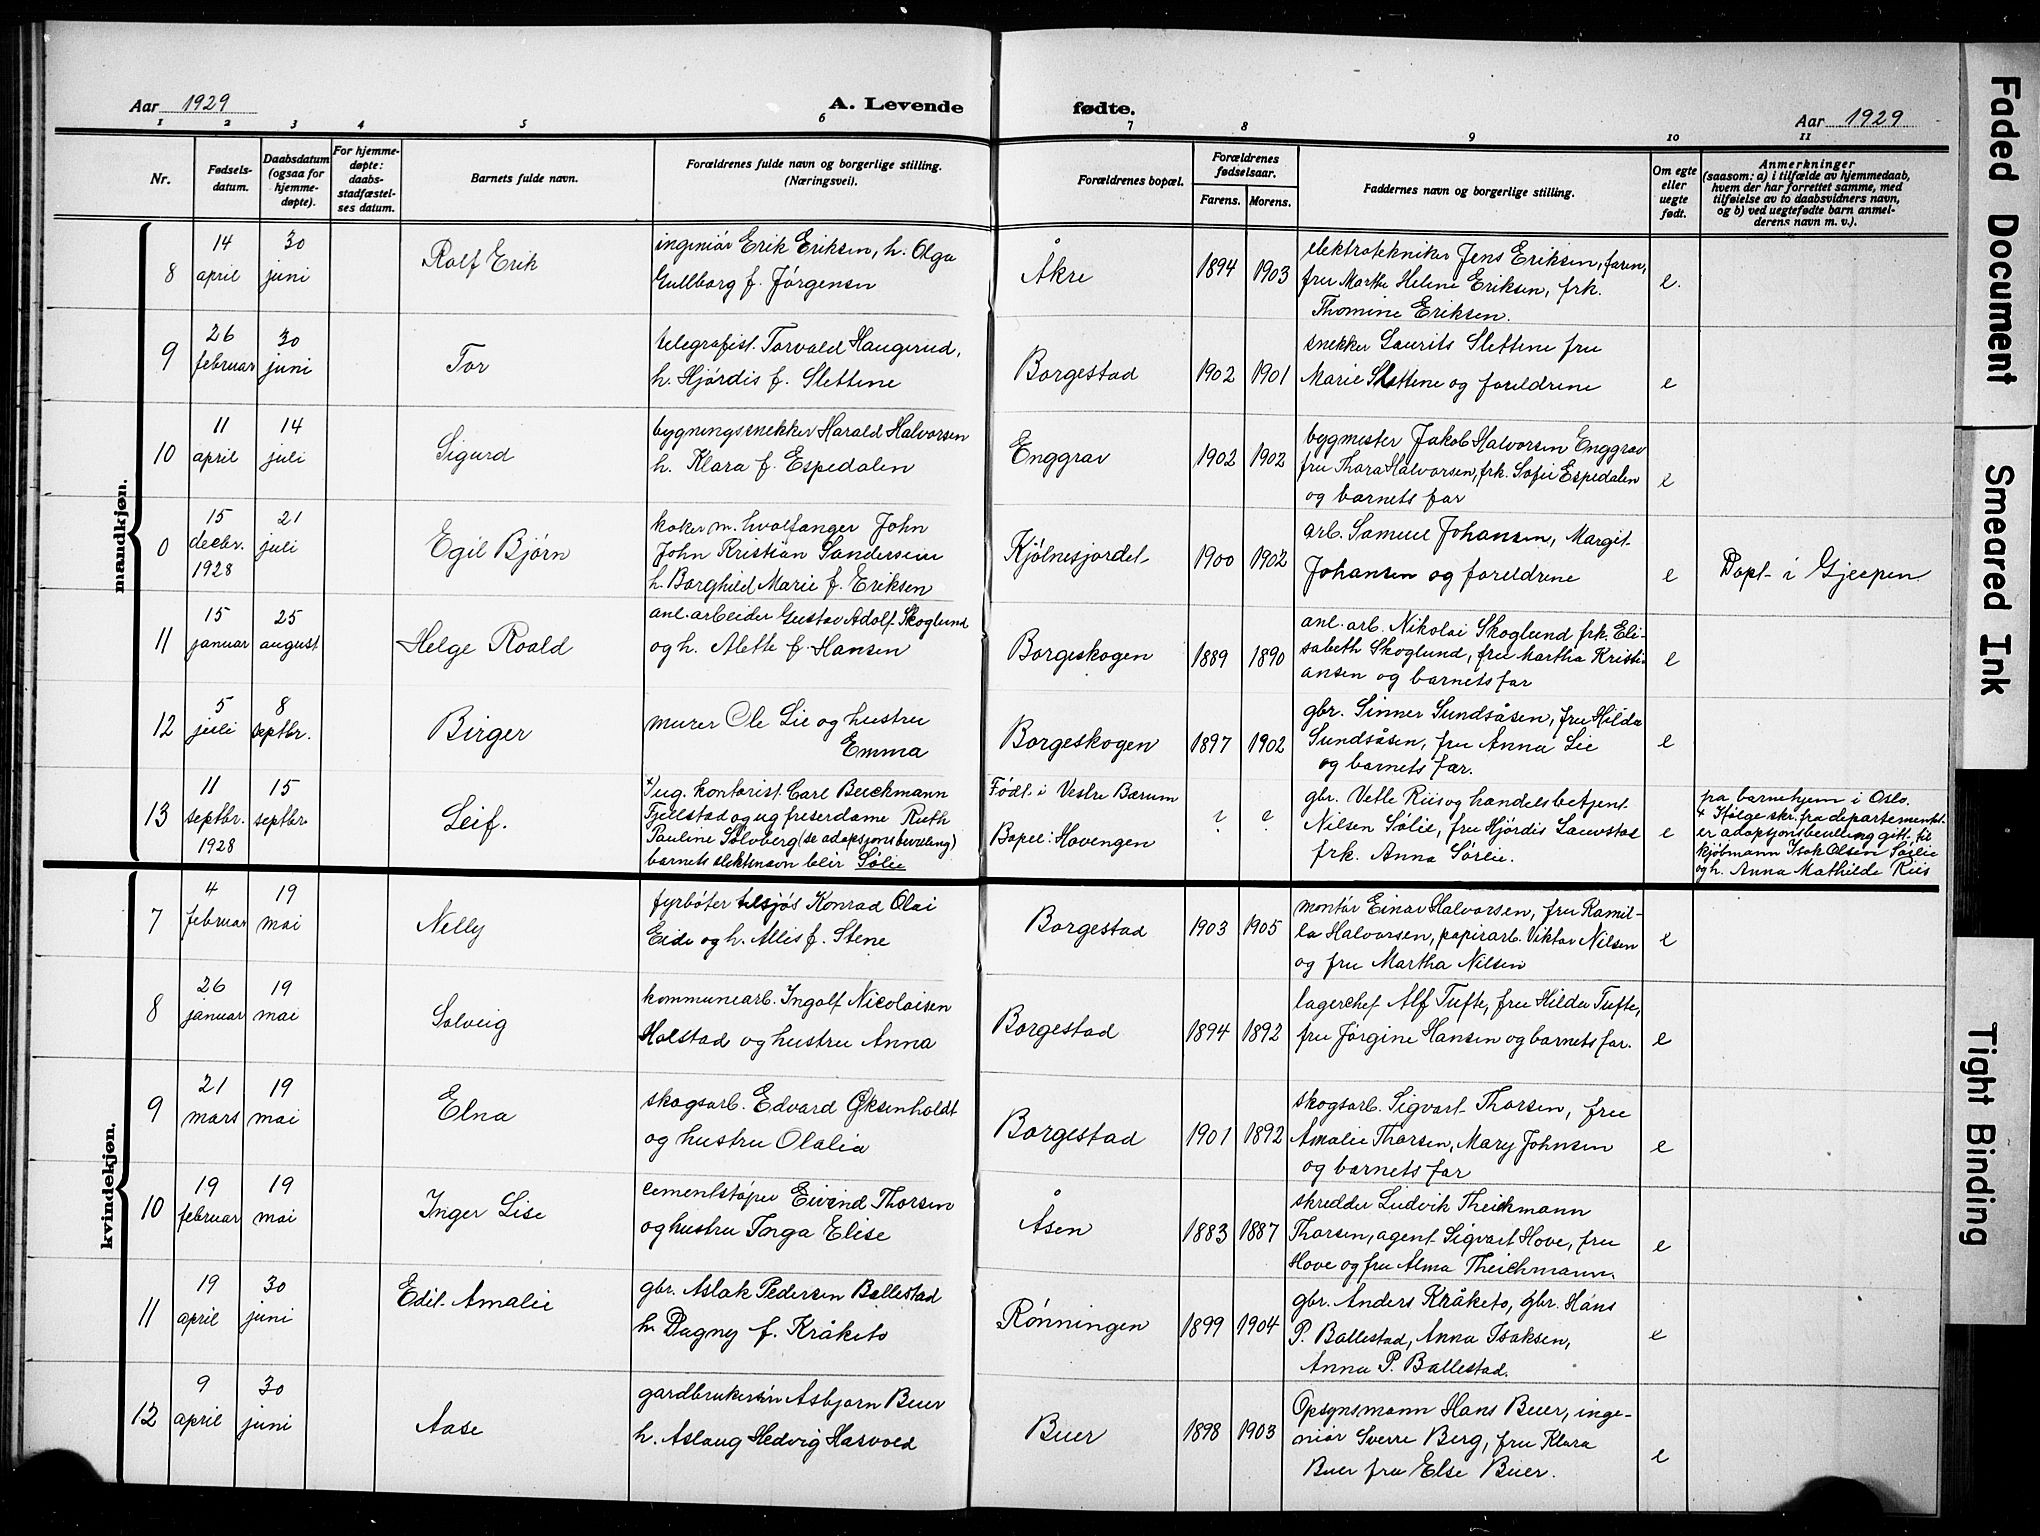 Aar 1929
A. Levende fødte.
Aar 1929
1 2 3 4 5 6 7 8 9 10 11
Nr.
Fødsels-
datum.
Daabsdatum
(ogsaa for
hjemme-
døpte).
For hjemme-
døpte:
daabs-
stadfæstel-
ses datum.
Barnets fulde navn.
Forældrenes fulde navn og borgerlige stilling.
(Næringsvei).
Forældrenes bopæl.
Forældrenes
fødselsaar.
Farens. Morens.
Faddernes navn og borgerlige stilling.
Om egte
eller
uegte
født.
Anmerkninger
(saasom: a) i tilfælde av hjemmedaab,
hvem der har forrettet samme, med
tilføielse av to daabsvidners navn,
og b) ved uegtefødte barn anmel-
derens navn m. v.).
mandkjøn.
8
14
april
30
juni
Rolf Erik
ingeniør Erik Eriksen, h. Olga
Gullborg f. Jørgensen
Åkre
1894 1903
elektrotekniker Jens Eriksen, faren,
fru Marthe Helene Eriksen, frk.
Thomine Eriksen.
e.
9
26
februar
30
juni
Tor
telegrafist Torvald Haugerud,
h. Hjørdis f. Slettene
Borgestad
1902 1901
snekker Laurits Slettene fru
Marie Slettene og foreldrene
e
10
11
april
14
juli
Sigurd
bygningssnekker Harald Halvorsen
h. Klara f. Espedalen
Enggrav
1902 1902
bygmester Jakob Halvorsen Enggrav
fru Thora Halvorsen, frk. Sofie Espedalen
og barnets far
e
0
15
decbr.
1928
21
juli
Egil Bjørn
koker m. hvalfanger John
John Kristian Gundersen
h. Borghild Marie f. Eriksen
Kjølnesjordet
1900 1902
arb. Samuel Johansen, Margit
Johansen og foreldrene
e
Døpt i Gjerpen
11
15
januar
25
august
Helge Roald
anl. arbeider Gustav Adolf Skoglund
og h. Alette f. Hansen
Borgeskogen
1889 1890
anl. arb. Nikolai Skoglund frk. Eli-
sabeth Skoglund, fru Martha Kristi-
ansen og barnets far
e
12
5
juli
8
septbr.
Birger
murer Ole Lie og hustru
Emma
Borgeskogen
1897 1902
gbr. Sinner Sundsåsen, fru Hilda
Sundsåsen, fru Anna Lie
og barnets far.
e
13
11
septbr.
1928
15
septbr.
Leif.
+/ug. kontorist Carl Beichmann
Fjellestad og ug friserdame Ruth
Pauline Solvberg (se adopsjonsbevilling)
barnets slektsnavn blir Sølie
Født i Vestre Bærum
Bopæl: Hovengen
? ?
gbr. Vetle Riis og handelsbetjent
Nilsen Sølie, fru Hjørdis Lauvstad
frk. Anna Sørlie.
e
på barnehjem i Oslo.
+ Ifølge skr. fra departementet
er adopsjonsbevilling gitt til
kjøbmann Isak Olsen Sørlie
og h. Anna Mathilde Riis
kvindekjøn.
7
4
februar
19
mai
Nelly
fyrbøter tilsjøs Konrad Olai
Eide og h. Allis f. Stene
Borgestad
1903 1905
montør Einar Halvorsen, fru Ramil-
la Halvorsen, papirarb. Viktor Nilsen
og fru Martha Nilsen
e
8
26
januar
19
mai
Solveig
kommunearb. Ingolf Nicolaisen
Holstad og hustru Anna
Borgestad
1894 1892
lagerchef Alf Tufte, fru Hilda Tufte,
fru Jørgine Hansen og barnets far.
e
9
21
mars
19
mai
Elna
skogsarb. Edvard Øksenholdt
og hustru Olalia
Borgestad
1901 1892
skogsarb. Sigvart Thorsen, fru
Amalie Thorsen, Mary Johnsen
og barnets far
e
10
19
februar
19
mai
Inger Lise
cementstøper Eivind Thorsen
og hustru Inga Elise
Åsen
1883 1887
skredder Ludvik Theichmann
Thorsen, agent Sigvart Hove, fru
Hove og fru Alma Theichmann.
e
11
19
april
30
juni
Edit Amalie
gbr. Aslak Pedersen Ballestad
h. Dagny f. Kråketo
Rønningen
1899 1904
gbr. Anders Kråketo, gbr. Hans
P. Ballestad, Anna Isaksen,
Anna P. Ballestad.
e
12
9
april
30
juni
Aase
gardbrukersøn Asbjørn Buer
h. Aslaug Hedvig Hasvold
Buer
1898 1903
Opsynsmann Hans Buer, inge-
niør Sverre Berg, fru Klara
Buer fru Else Buer.
e
Faded Document
Smeared Ink
Tight Binding